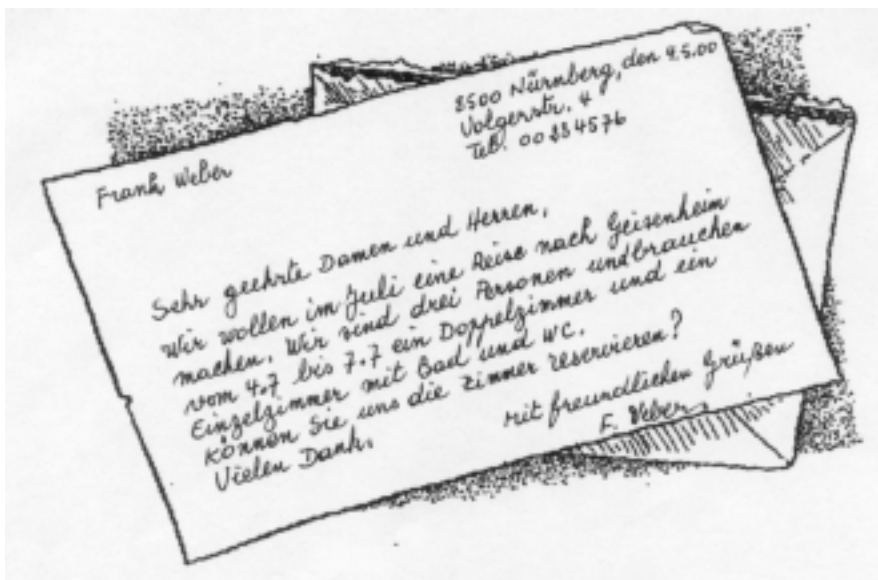 8500 Nürnberg, den 9.5.00
Volgerstr. 4
Tel. 0084576
Frank Weber
Sehr geehrte Damen und Herren,
wir wollen im Juli eine Reise nach Geisenheim
machen. Wir sind drei Personen und brauchen
vom 4.7 bis 7.7 ein Doppelzimmer und ein
Einzelzimmer mit Bad und WC.
Können Sie uns die Zimmer reservieren?
Vielen Dank.
Mit freundlichen Grüßen
F. Weber